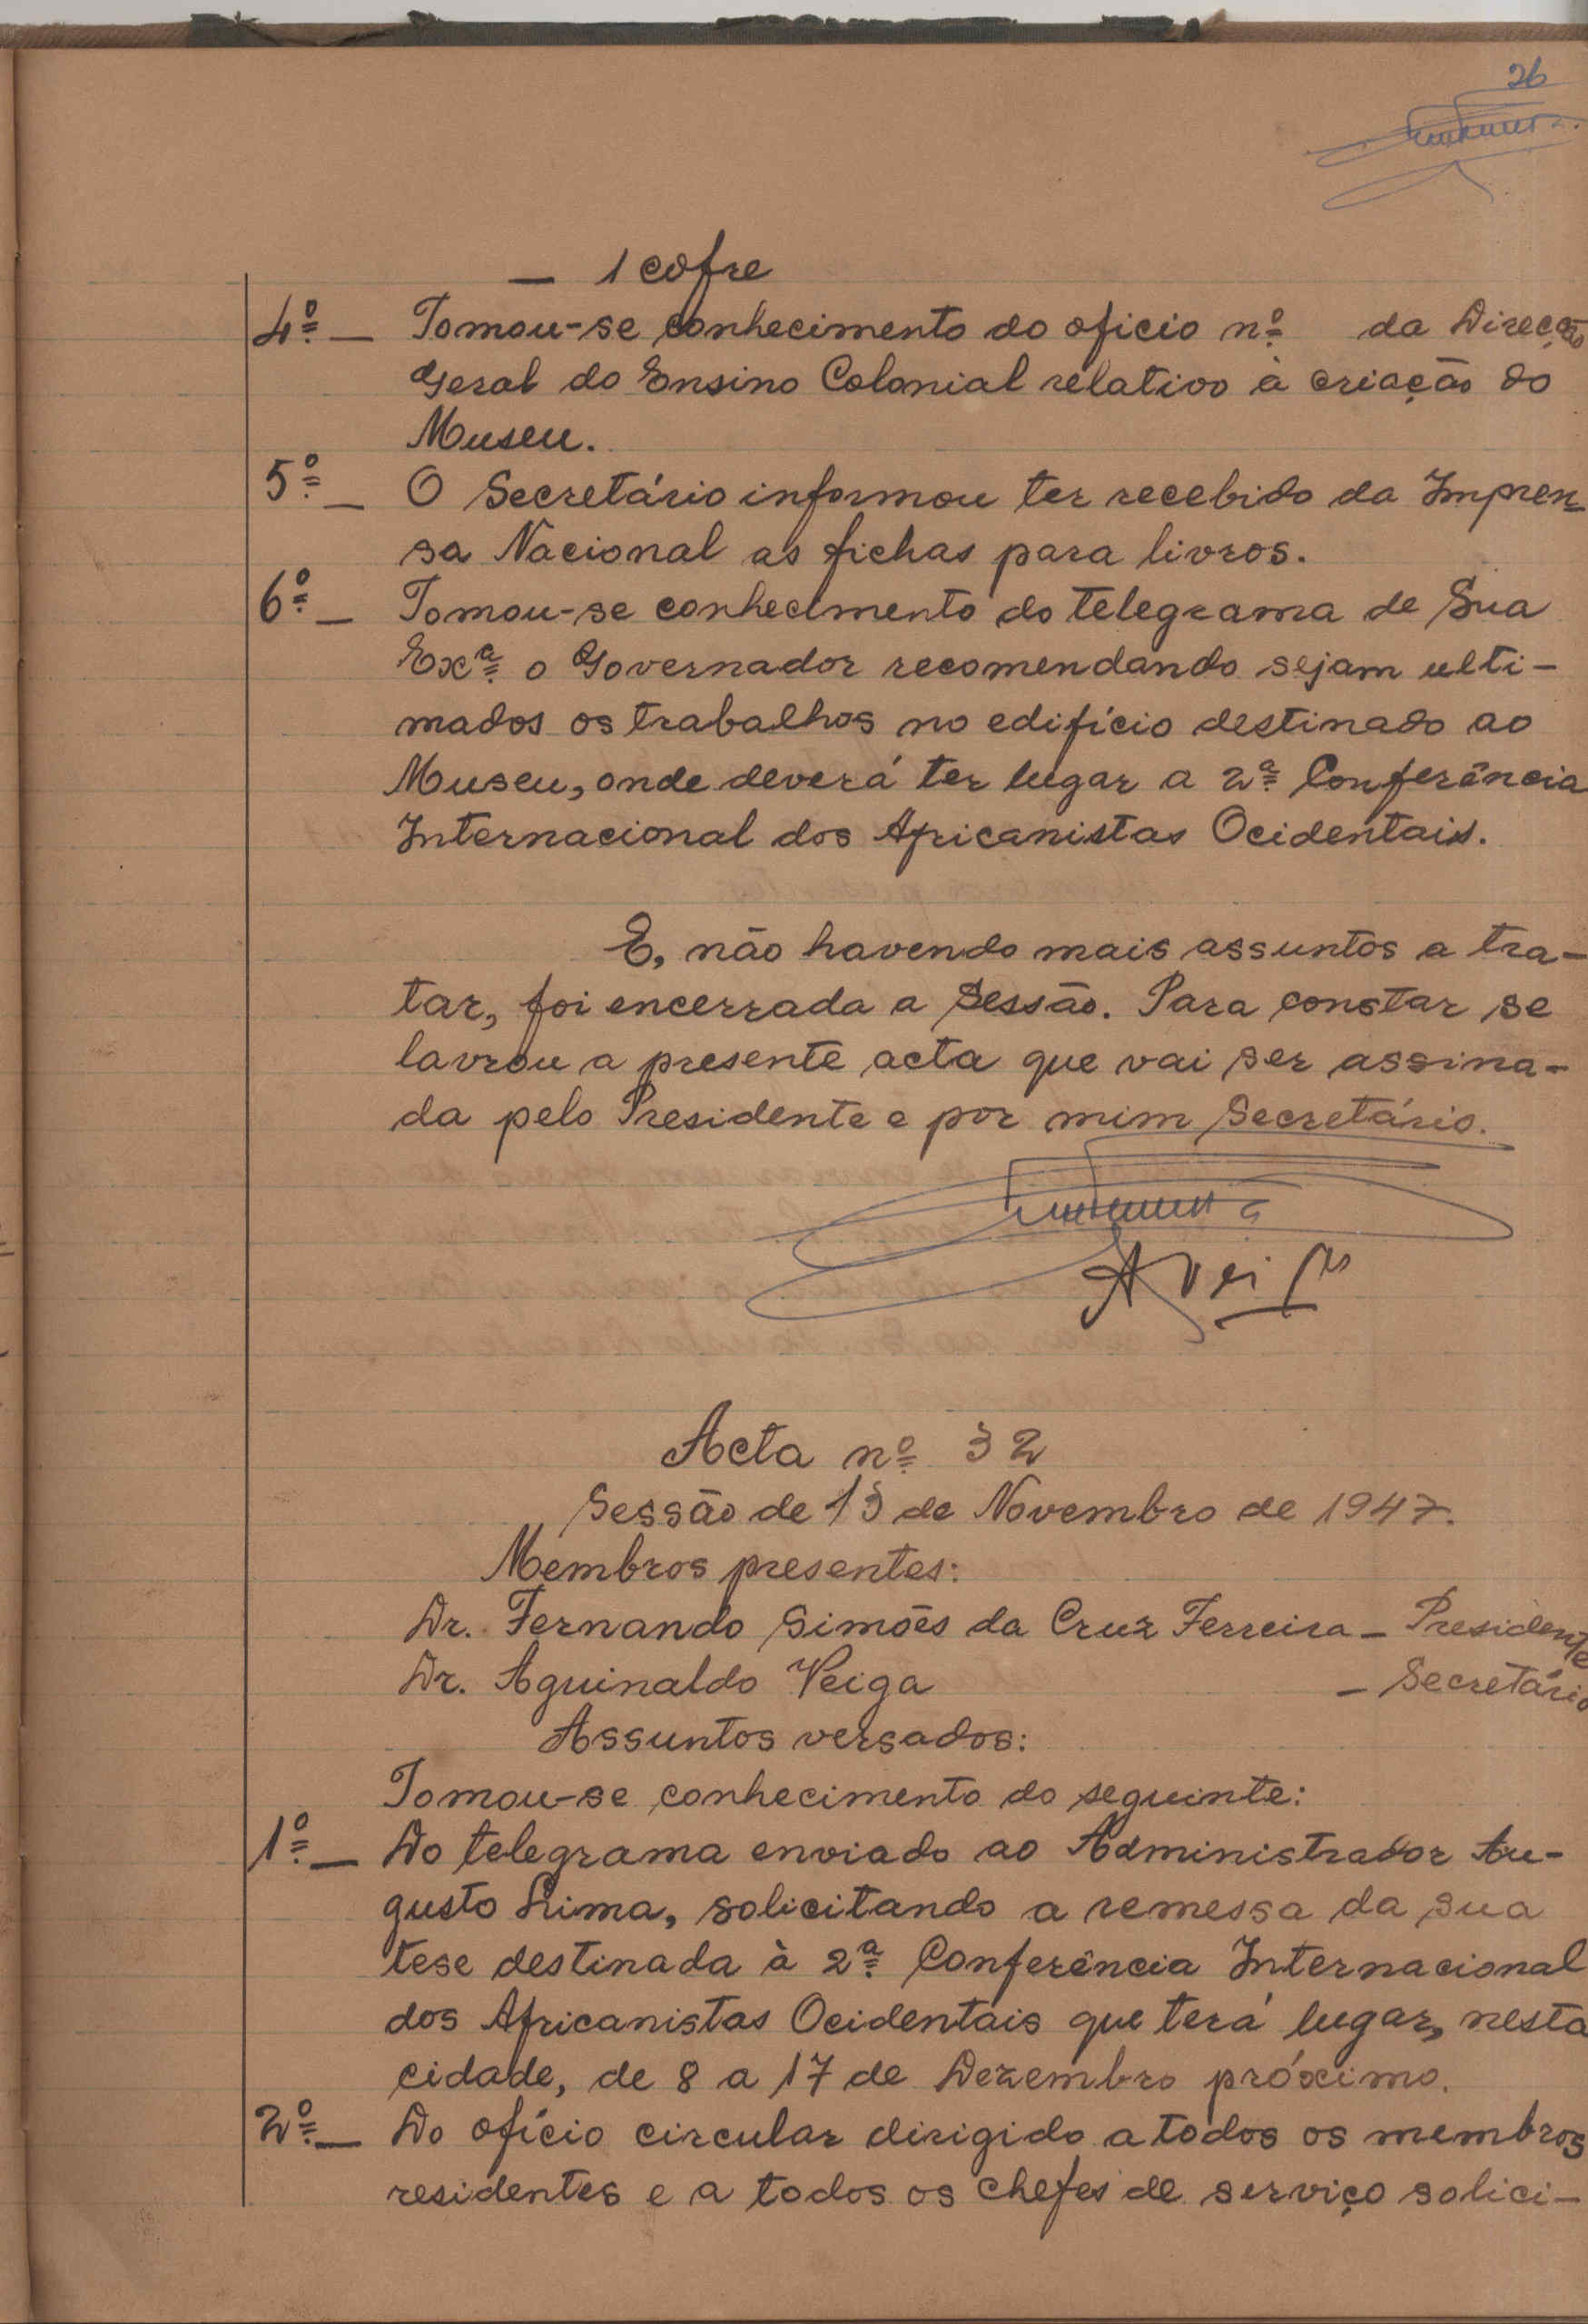 26
— 1 cofre
4º — Tomou-se conhecimento do oficio nº da Direcção
Geral do Ensino Colonial relativo à criação do
Museu.
5º — O Secretário informou ter recebido da Impren-
sa Nacional as fichas para livros.
6º — Tomou-se conhecimento do telegrama de Sua
Exª o Governador recomendando sejam ulti-
mados os trabalhos no edifício destinado ao
Museu, onde deverá ter lugar a 2ª Conferência
Internacional dos Africanistas Ocidentais.
E, não havendo mais assuntos a tra-
tar, foi encerrada a Sessão. Para constar se
lavrou a presente acta que vai ser assina-
da pelo Presidente e por mim Secretário.
AVeiga
Acta nº 32
Sessão de 13 de Novembro de 1947.
Membros presentes:
Dr. Fernando Simões da Cruz Ferreira — Presidente
Dr. Aguinaldo Veiga — Secretário
Assuntos versados:
Tomou-se conhecimento do seguinte:
1º — Do telegrama enviado ao Administrador Au-
gusto Lima, solicitando a remessa da sua
tese destinada à 2ª Conferência Internacional
dos Africanistas Ocidentais que terá lugar, nesta
cidade, de 8 a 17 de Dezembro próximo.
2º — Do ofício circular dirigido a todos os membros
residentes e a todos os chefes de serviço solici-